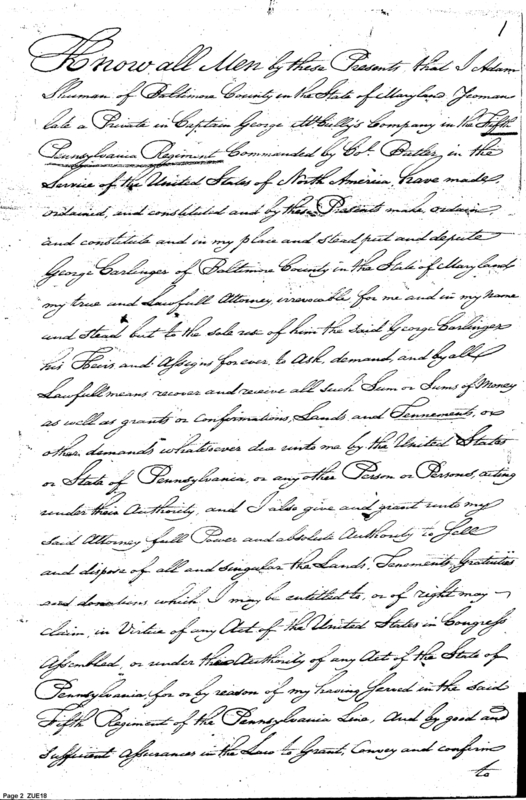 1
Know all Men by these Presents, that I Adam
Shuman of Baltimore County in the State of Maryland Yeoman
late a Private in Captain George McCully's Company in the Fifth
Pennsylvania Regiment Commanded by Col. Butler, in the
Service of the United States of North America, have made
ordained, and constituted and by these Presents make, ordain,
and constitute and in my place and stead put and depute
George Carlinger of Baltimore County in the State of Maryland
my true and Lawfull Attorney, irrevocable for me and in my name
and stead but to the sole use of him the said George Carlinger
his Heirs and Assigns for ever, to Ask, demand, and by all
Lawfull means recover and receive all such Sum or Sums of Money
as well as grants or confirmations, Lands and Tennements, or
other demands whatsoever due unto me by the United States
or State of Pennsylvania, or any other Person or Persons, acting
under their Authority, and I also give and grant unto my
said Attorney full Power and absolute Authority to Sell
and dispose of all and singular the Lands, Tenements, Gratuities
and donations which I may be entitled to, or of right may
claim, in Virtue of any Act of the United States in Congress
Assembled, or under the Authority of any Act of the State of
Pennsylvania, for or by reason of my having Served in the said
Fifth Regiment of the Pennsylvania Line, And by good and
sufficient Assurances in the Law to Grant, Convey and confirm
to
Page 2 ZUE18